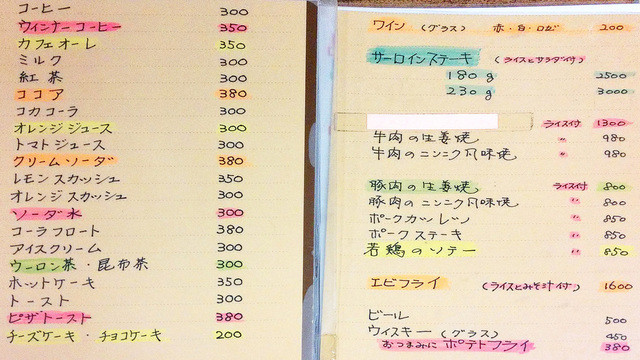 コーヒー 300
ウィンナーコーヒー 350
カフェオーレ 350
ミルク 300
紅茶 300
ココア 380
コカコーラ 300
オレンジジュース 300
トマトジュース 300
クリームソーダ 380
レモンスカッシュ 350
オレンジスカッシュ 300
ソーダ水 300
コーラフロート 380
アイスクリーム 300
ウーロン茶・昆布茶 300
ホットケーキ 350
トースト 300
ピザトースト 380
チーズケーキ・チョコケーキ 200
ワイン (グラス) 赤・白・ロゼ 200
サーロインステーキ (ライスとサラダ付)
180g 2500
230g 3000
ライス付 1300
牛肉の生姜焼 〃 980
牛肉のニンニク風味焼 〃 980
豚肉の生姜焼 ライス付 800
豚肉のニンニク風味焼 〃 800
ポークカツレツ 〃 850
ポークステーキ 〃 850
若鶏のソテー 〃 850
エビフライ (ライスとみそ汁付) 1600
ビール 500
ウィスキー (グラス) 450
おつまみに ポテトフライ 380